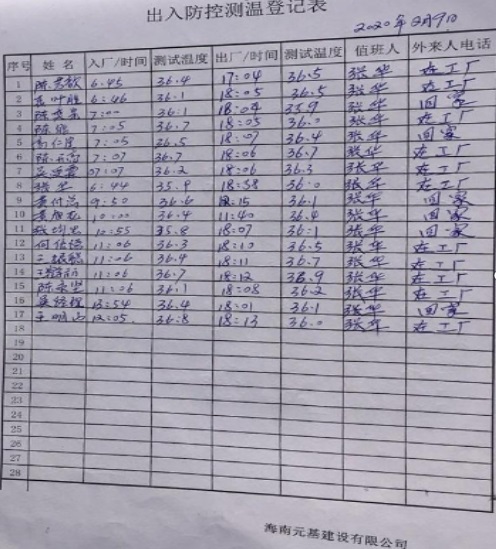 出入防控测温登记表
2020年2月9日
序号 姓名 入厂/时间 测试温度 出厂/时间 测试温度 值班人 外来人电话
1 6:45 36.4 17:04 36.5 张华 在工厂
2 6:46 36.1 18:05 36.5 张华 在工厂
3 7:00 36.1 18:04 35.9 张华 回家
4 陈 7:05 36.7 18:05 36.0 张华 在工厂
5 7:05 36.5 18:07 36.4 张华 回家
6 陈 7:07 36.7 18:06 36.7 张华 在工厂
7 07:07 36.2 18:06 36.3 张华 在工厂
8 张华 6:44 35.9 18:58 36.0 张华 在工厂
9 9:50 36.6 18:15 36.1 张华 回家
10 10:00 36.4 11:40 36.4 张华 回家
11 10:55 35.8 18:07 36.1 张华 回家
12 11:06 36.3 18:10 36.5 张华 在工厂
13 11:06 36.4 18:11 36.7 张华 在工厂
14 11:06 36.7 18:12 张华 在工厂
15 陈 11:06 36.1 18:08 36.2 张华 在工厂
16 13:54 36.4 18:01 36.1 张华 回家
17 王明山 12:05 36.8 18:13 36.0 张华 在工厂
18
19
20
21
22
23
24
25
26
27
28
海南元基建设有限公司